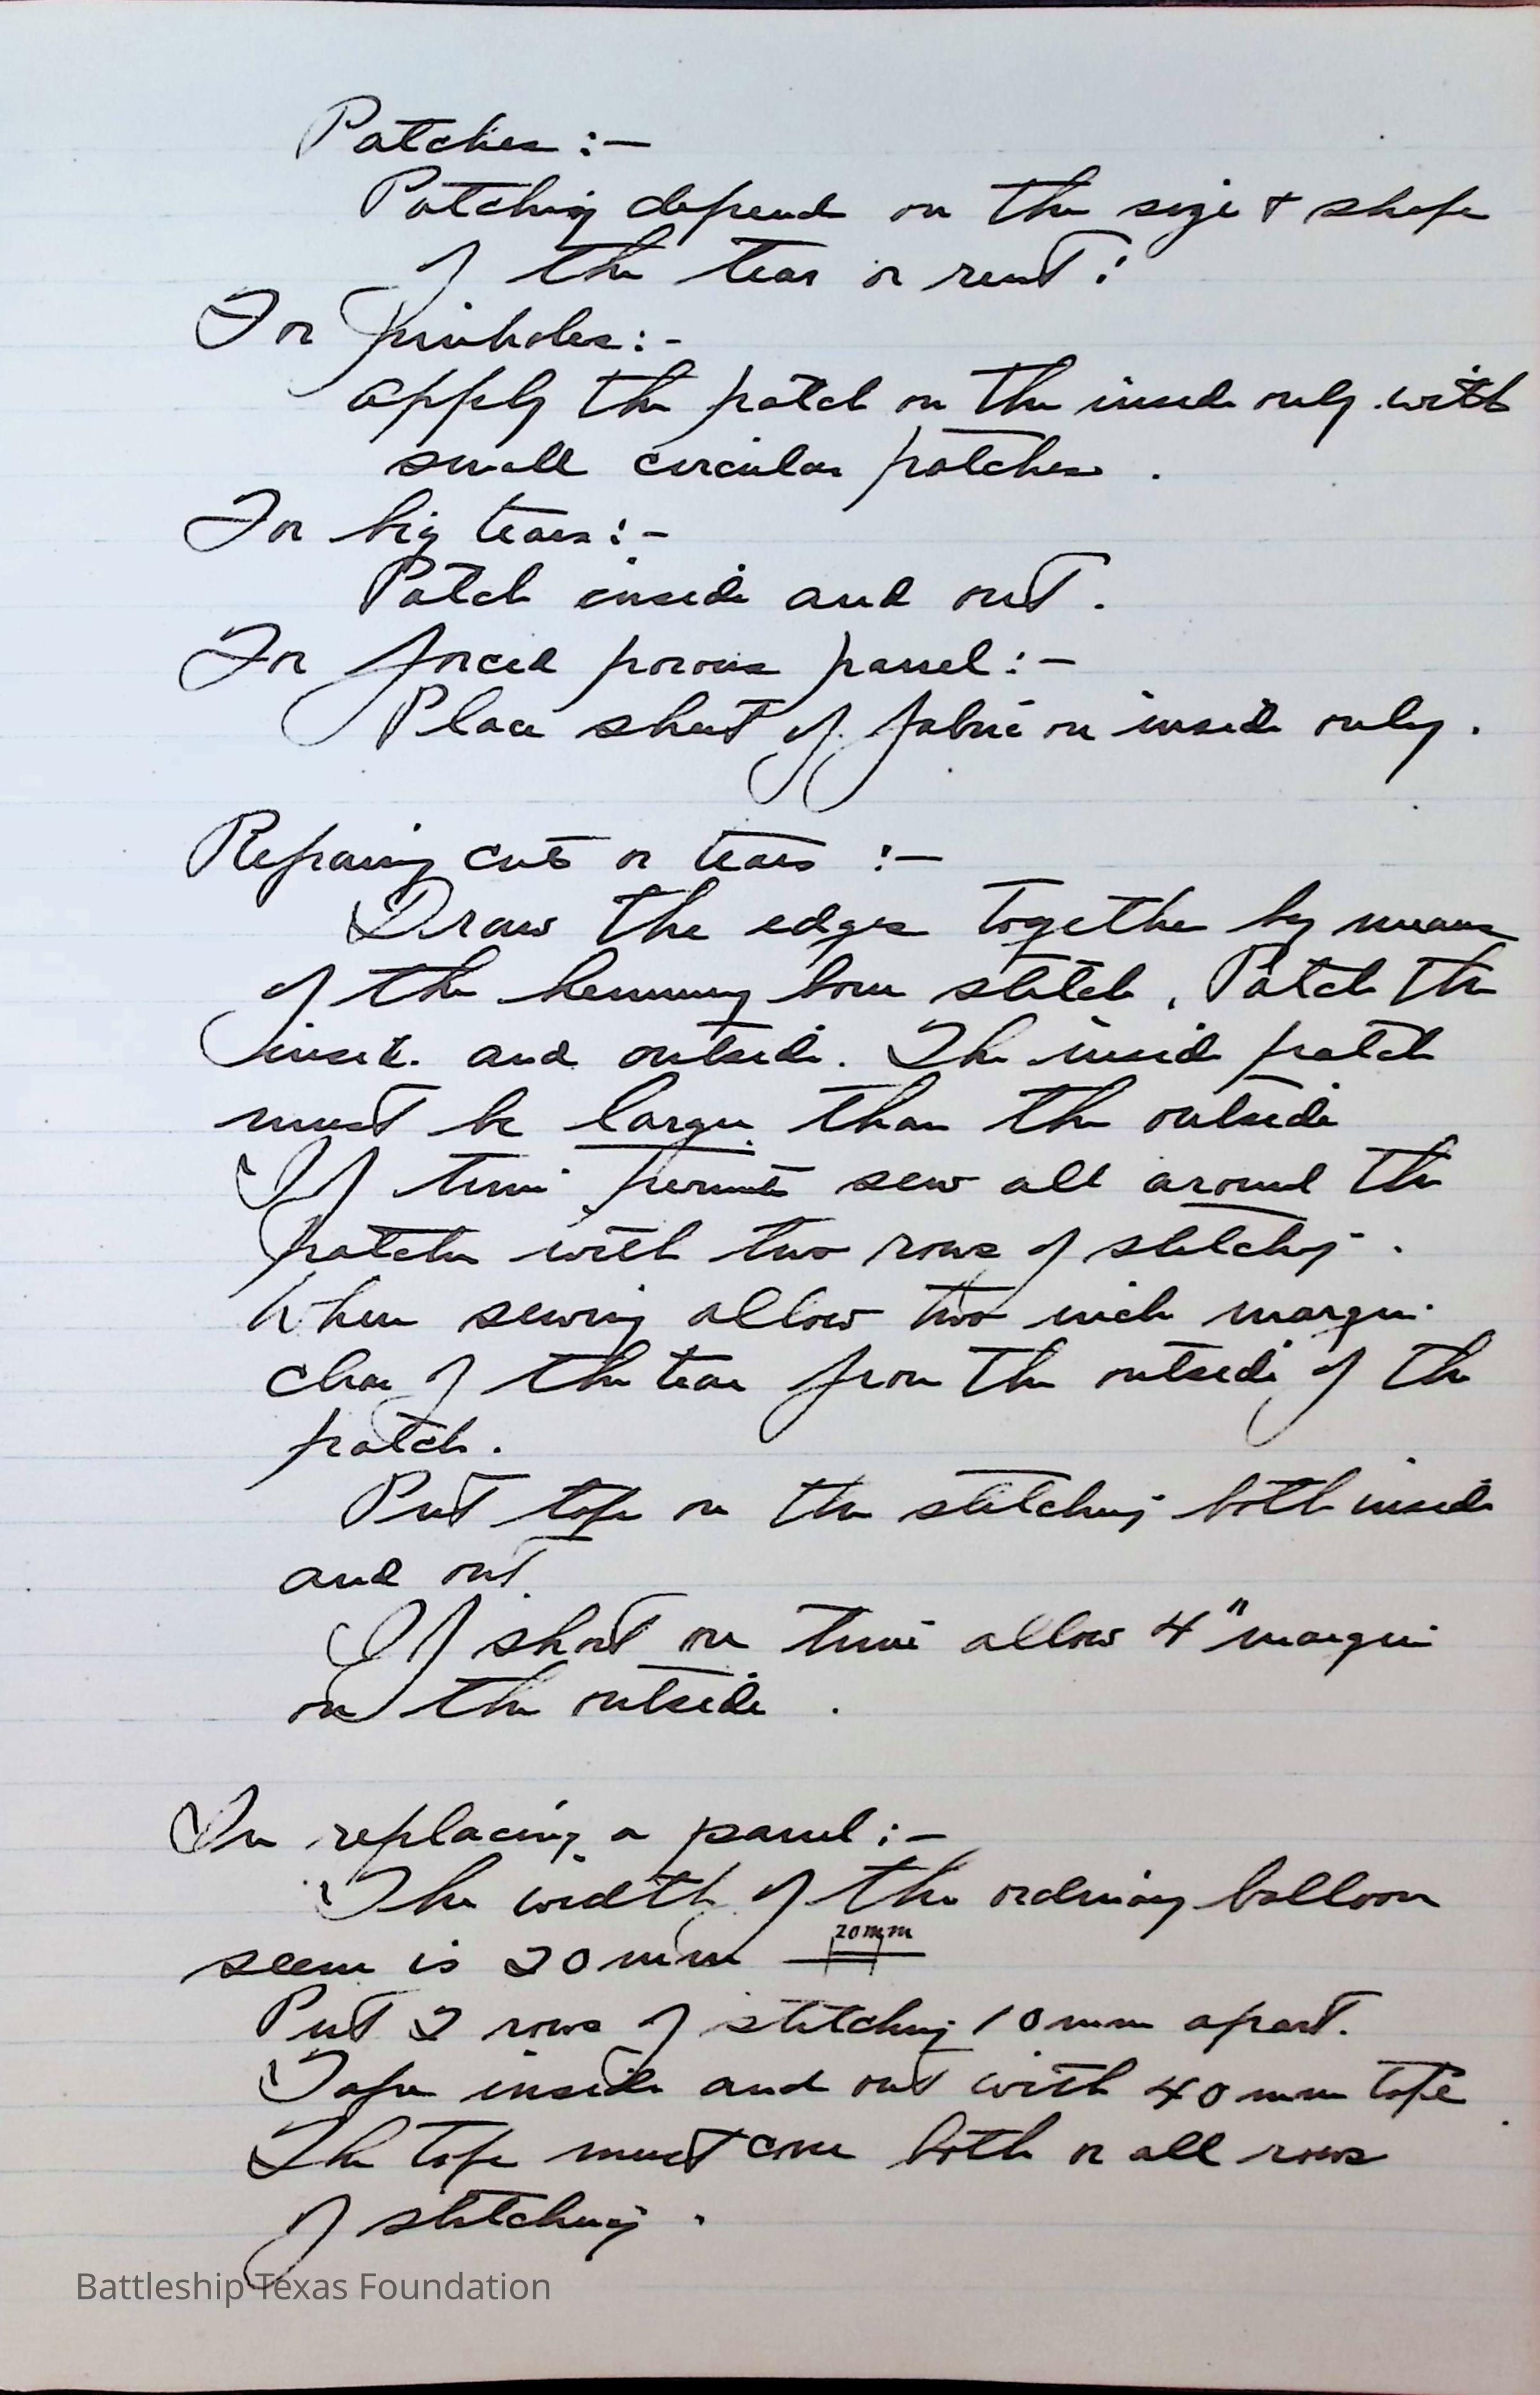 Patches :-
Patching depend on the size + shape
of the tear or rent :
For pinholes :-
apply the patch on the inside only with
small circular patches .
For big tears :-
Patch inside and out .
For forced porous pannel :-
Place sheet of fabric on inside only .
Repairing cuts or tears :-
Draw the edges together by means
of the hemming bone stitch . Patch the
inside and outside . The inside patch
must be larger than the outside
If time permits sew all around the
patches with two rows of stitching .
When sewing allow two inch margin
clear of the tear from the outside of the
patch .
Put tape on the stitching both inside
and out .
If short on time allow 4" margin
on the outside .
In replacing a panel :-
The width of the ordinary balloon
seem is 20 mm
20 mm
Put 2 rows of stitching 10 mm apart .
Tape inside and out with 40 mm tape
The tape must cover both or all rows
of stitching .
Battleship Texas Foundation